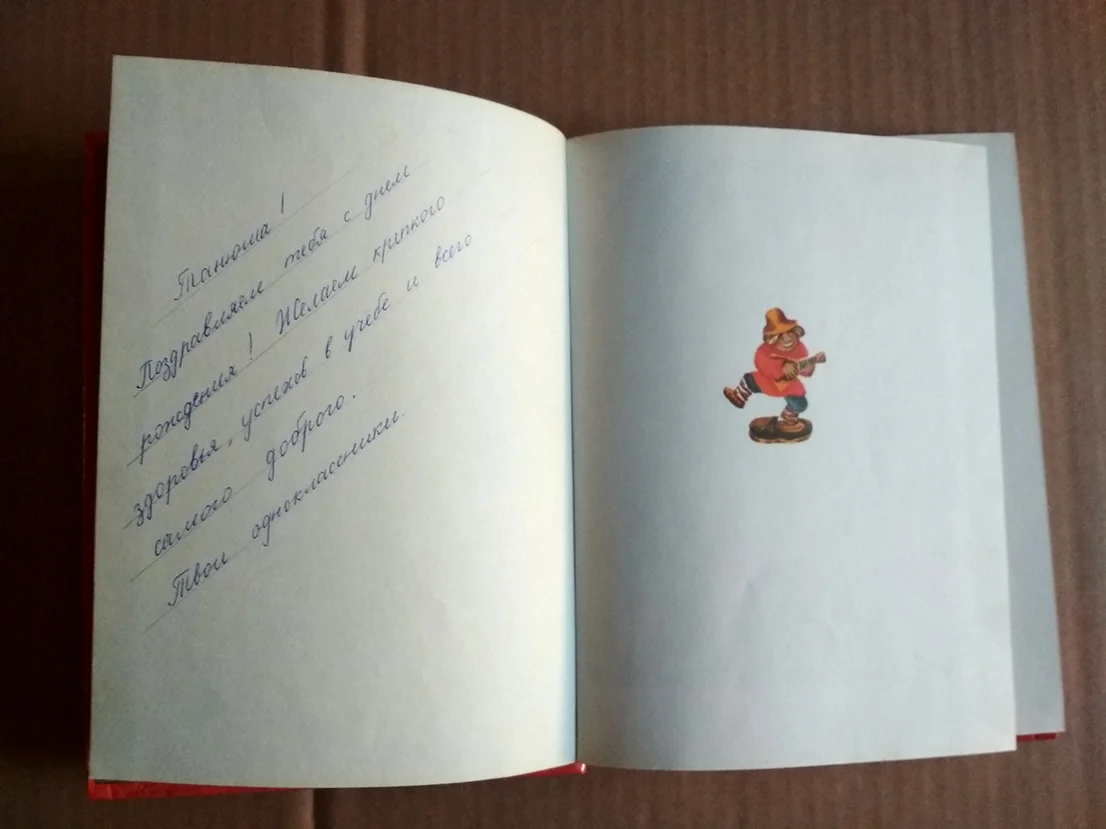 Танюша!
Поздравляем тебя с днем
рождения! Желаем крепкого
здоровья, успехов в учебе и всего
самого доброго.
Твои одноклассники.